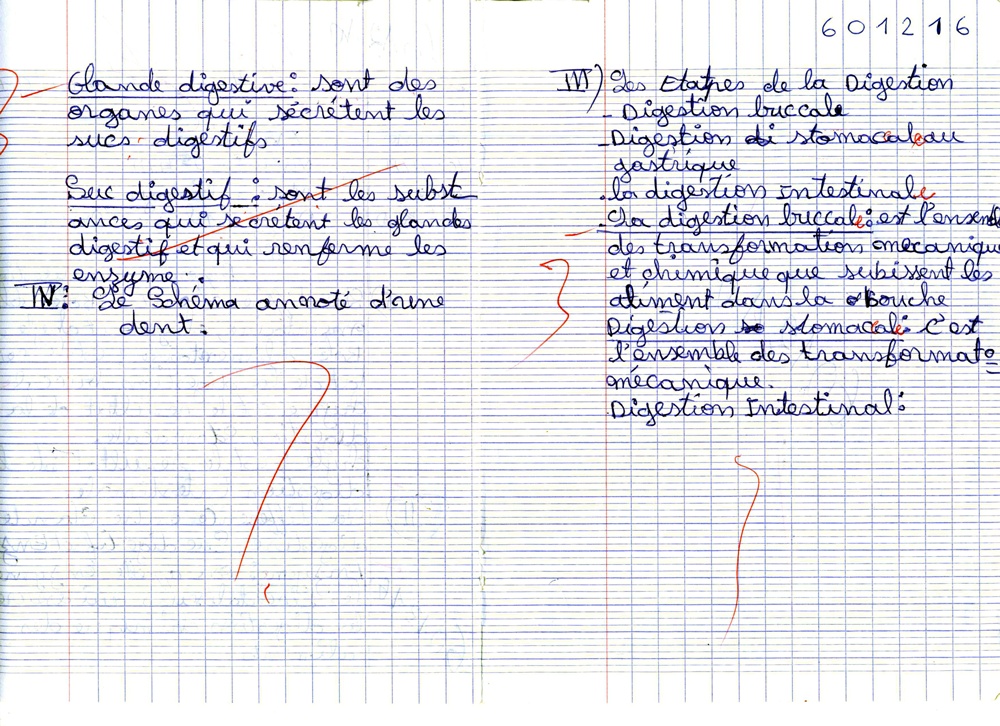 Glande digestive : sont des
organes qui sécrétent les
sucs digestifs
Suc digestif : sont les subst
ances qui secrètent les glandes
digestif et qui renferme les
ensyme.
IV: Le Schéma annoté d'une
dent.
601216
III) Les Etatpes de la Digestion
- Digestion buccale
- Digestion stomacaleau
gastrique
. la digestion intestinale
- La digestion buccale: est l'ensem
des transformation mecanique
et chimique que subissent les
aliment dans la Bouche
Digestion stomacale: c'est
l'ensemble des transformato
mécanique.
Digestion Intestinal: